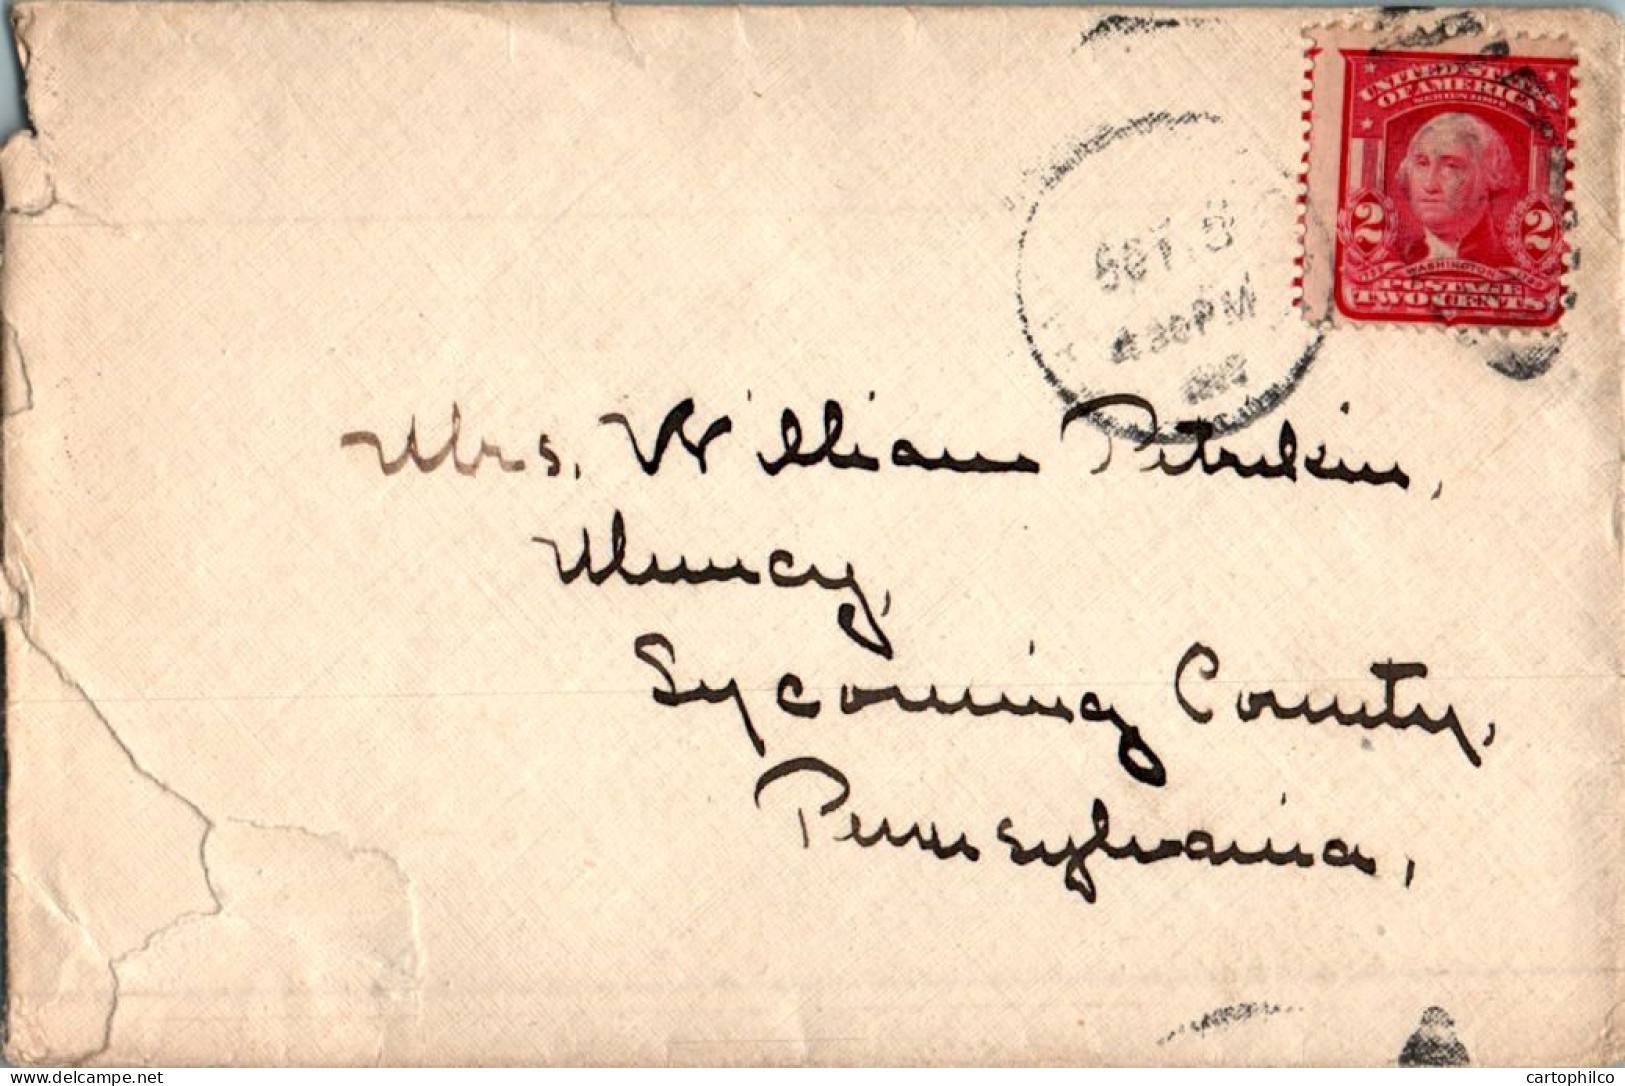 UNITED STATES
OF AMERICA
2 2
WASHINGTON
POSTAGE
TWO CENTS
OCT 5
30 PM
Mrs. William Petrikin,
Muncy,
Lycoming County,
Pennsylvania.
delcampe.net
cartophilco